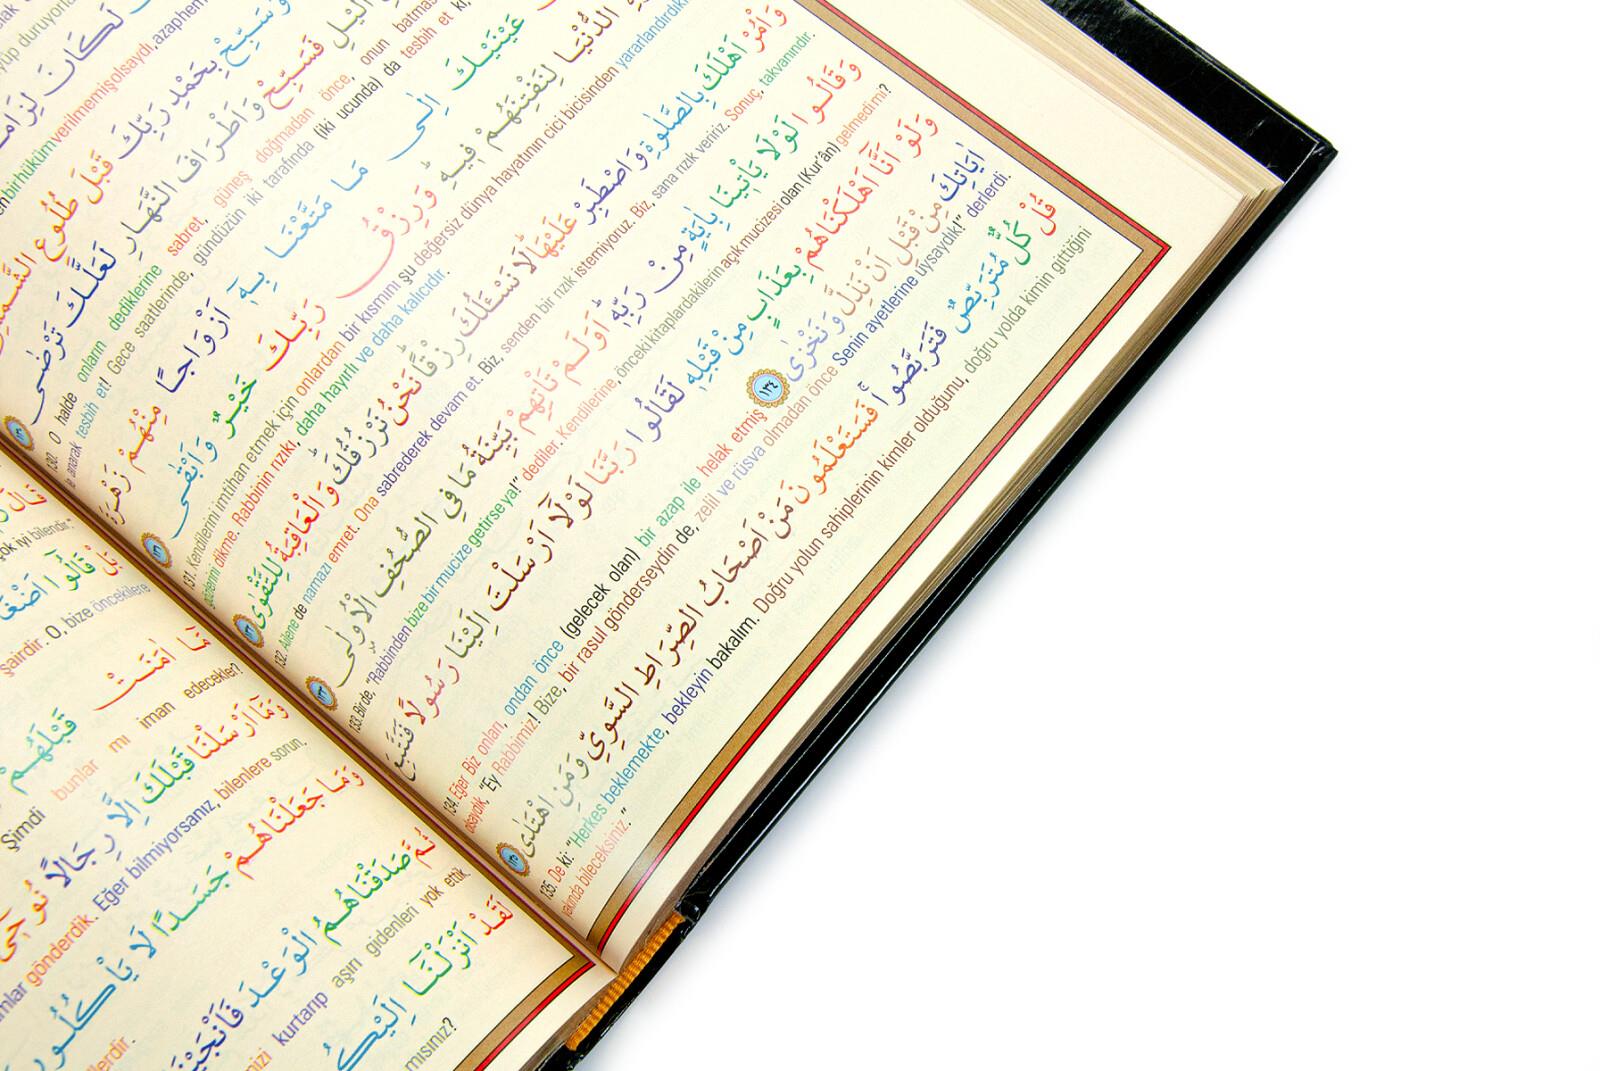 لَكَانَ لِزَامًا
وَسَبِّحْ بِحَمْدِ رَبِّكَ قَبْلَ طُلُوعِ الشَّمْسِ
الَّيْلِ فَسَبِّحْ وَاَطْرَافَ النَّهَارِ لَعَلَّكَ تَرْضٰى ﴿١٣٠﴾
130. O halde onların dediklerine sabret, güneş doğmadan önce, onun
anarak tesbih et! Gece saatlerinde, gündüzün iki tarafında (iki ucunda) da tesbih et ki,
عَيْنَيْكَ اِلٰى مَا مَتَّعْنَا بِهٖٓ اَزْوَاجًا مِنْهُمْ زَهْرَةَ
الدُّنْيَا لِنَفْتِنَهُمْ فٖيهِ وَرِزْقُ رَبِّكَ خَيْرٌ وَاَبْقٰى ﴿١٣١﴾
131. Kendilerini imtihan etmek için onlardan bir kısmını şu değersiz dünya hayatının cici bicisinden yararlandırdık
gözlerini dikme. Rabbinin rızkı, daha hayırlı ve daha kalıcıdır.
وَاْمُرْ اَهْلَكَ بِالصَّلٰوةِ وَاصْطَبِرْ عَلَيْهَا لَا نَسْـَٔلُكَ رِزْقًا نَحْنُ نَرْزُقُكَ وَالْعَاقِبَةُ لِلتَّقْوٰى ﴿١٣٢﴾
132. Ailene de namazı emret. Ona sabrederek devam et. Biz, senden bir rızık istemiyoruz. Biz, sana rızık veririz. Sonuç, takvanındır.
وَقَالُوا لَوْلَا يَاْتٖينَا بِاٰيَةٍ مِنْ رَبِّهٖ اَوَلَمْ تَاْتِهِمْ بَيِّنَةُ مَا فِي الصُّحُفِ الْاُولٰى ﴿١٣٣﴾
133. Bir de, “Rabbinden bize bir mucize getirse ya!” dediler. Kendilerine, önceki kitaplardakilerin açık mucizesi olan (Kur’ân) gelmedi mi?
وَلَوْ اَنَّٓا اَهْلَكْنَاهُمْ بِعَذَابٍ مِنْ قَبْلِهٖ لَقَالُوا رَبَّنَا لَوْلَٓا اَرْسَلْتَ اِلَيْنَا رَسُولًا فَنَتَّبِعَ
اٰيَاتِكَ مِنْ قَبْلِ اَنْ نَذِلَّ وَنَخْزٰى ﴿١٣٤﴾
134. Eğer Biz onları, ondan önce (gelecek olan) bir azap ile helak etmiş
olsaydık, “Ey Rabbimiz! Bize, bir rasul gönderseydin de, zelil ve rüsva olmadan önce Senin ayetlerine uysaydık!” derlerdi.
قُلْ كُلٌّ مُتَرَبِّصٌ فَتَرَبَّصُوا فَسَتَعْلَمُونَ مَنْ اَصْحَابُ الصِّرَاطِ السَّوِيِّ وَمَنِ اهْتَدٰى ﴿١٣٥﴾
135. De ki: “Herkes beklemekte, bekleyin bakalım. Doğru yolun sahiplerinin kimler olduğunu, doğru yolda kimin gittiğini
yakında bileceksiniz.”
قَالَ
çok iyi bilendir.”
بَلْ قَالُٓوا اَضْغَا
şairdir. O, bize öncekilere
مَٓا اٰمَنَتْ قَبْلَهُمْ
Şimdi bunlar mı iman edecekler?
وَمَٓا اَرْسَلْنَا قَبْلَكَ اِلَّا رِجَالًا نُوحٖٓي
gönderdik. Eğer bilmiyorsanız, bilenlere sorun.
وَمَا جَعَلْنَاهُمْ جَسَدًا لَا يَاْكُلُونَ
ثُمَّ صَدَقْنَاهُمُ الْوَعْدَ فَاَنْجَيْنَا
kurtarıp aşırı gidenleri yok ettik.
لَقَدْ اَنْزَلْنَٓا اِلَيْكُمْ
mısınız?